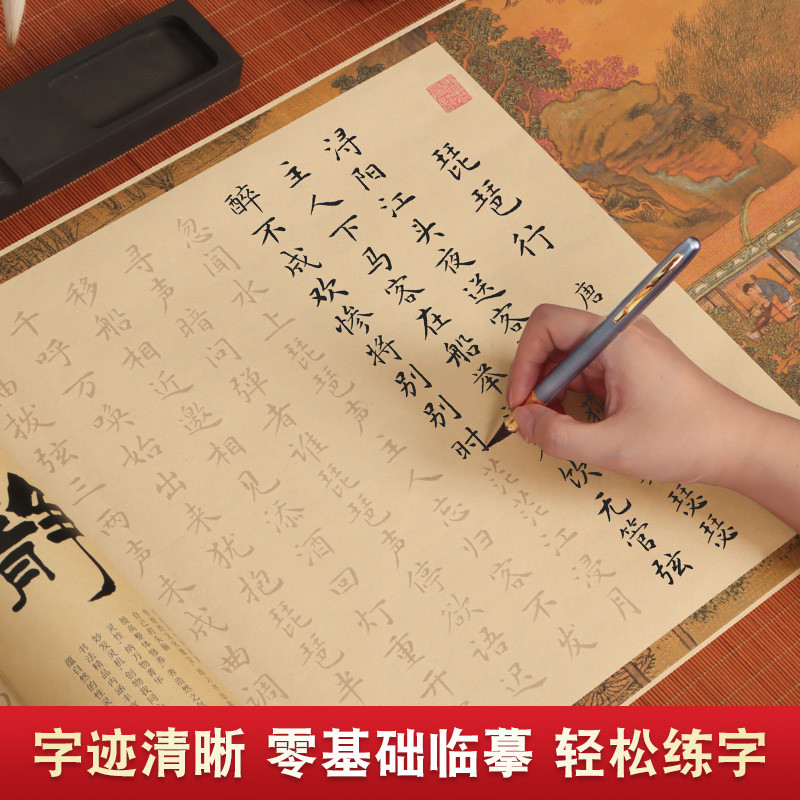 琵琶行
唐
浔阳江头夜送客
瑟瑟
主人下马客在船举
饮无管弦
醉不成欢惨将别别时茫茫江浸月
忽闻水上琵琶声主人忘归客不发
寻声暗问弹者谁琵琶声停欲语迟
移船相近邀相见添酒回灯重开
千呼万唤始出来犹抱琵琶半
拨弦三两声未成曲调
字迹清晰 零基础临摹 轻松练字